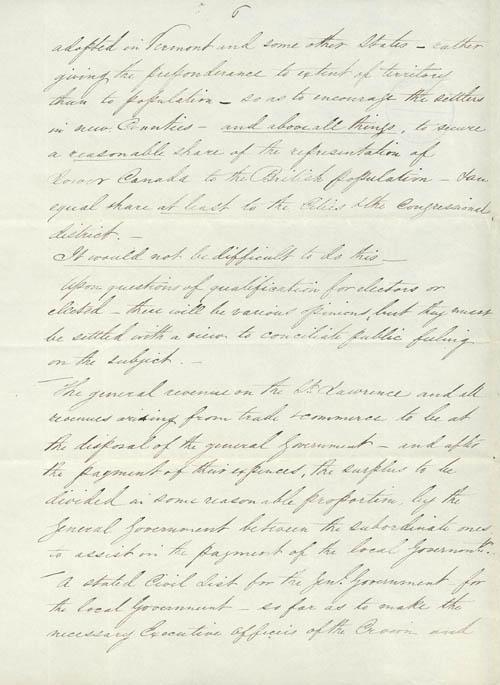 6
adopted in Vermont and some other States – rather
giving the preponderance to extent of territory
than to population – so as to encourage the settlers
in new Counties – and above all things, to secure
a reasonable share of the representation of
Lower Canada to the British population – & an
equal share at least to the Cities & the Congressional
district. –
It would not be difficult to do this –
Upon questions of qualification for electors or
elected – there will be various opinions, but they must
be settled with a view to conciliate public feeling
on the subject. –
The general revenue on the St. Lawrence and all
revenues arising from trade & commerce to be at
the disposal of the general Government – and after
the payment of their expences, the surplus to be
divided in some reasonable proportion, by the
General Government between the subordinate ones
to assist in the payment of the local Governmts.
A stated Civil List for the Genl. Government – for
the local Government – so far as to make the
necessary Executive Officers of the Crown and